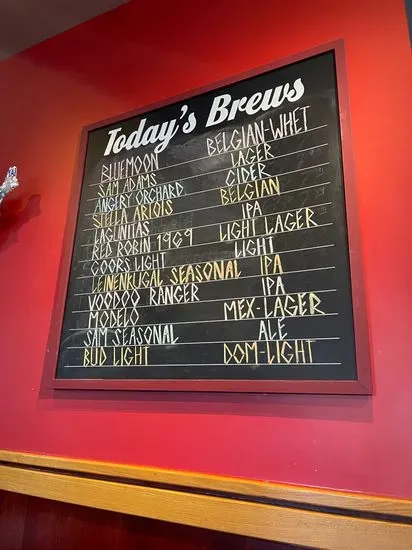 Today's Brews
BLUEMOON BELGIAN-WHET
SAM ADAMS LAGER
ANGERY ORCHARD CIDER
STELLA ARIOIS BELGIAN
LAGUNITAS IPA
RED ROBIN 1969 LIGHT LAGER
COORS LIGHT LIGHT
LEINENKUGAL SEASONAL IPA
VOODOO RANGER IPA
MODELO MEX-LAGER
SAM SEASONAL ALE
BUD LIGHT DOM-LIGHT